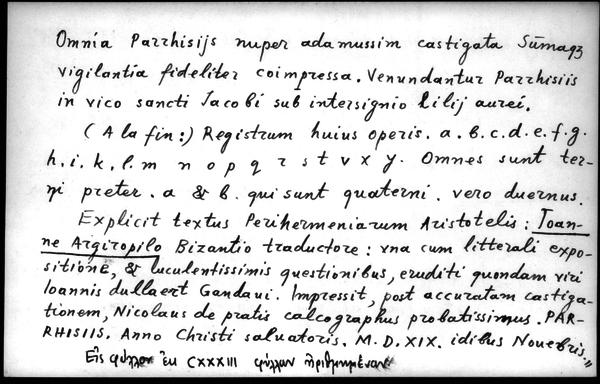 Omnia Parrhisijs nuper adamussim castigata Sūmaqꝫ
vigilantia fideliter coimpressa. Venundantur Parrhisiis
in vico sancti Jacobi sub intersignio Lilij aurei.
(A la fin:) Registrum huius operis. a. b. c. d. e. f. g.
h. i. k. l. m n o p q r s t v x y. Omnes sunt ter-
ni preter. a & b. qui sunt quaterni. vero duernus.
Explicit textus Perihermeniarum Aristotelis: Joan-
ne Argiropilo Bizantio traductore: vna cum litterali expo-
sitione, & luculentissimis questionibus, eruditi quondam viri
Ioannis dullaert Gandaui. Impressit, post accuratam castiga-
tionem, Nicolaus de pratis calcographus probatissimus. PAR-
RHISIIS. Anno Christi saluatoris. M. D. XIX. idibus Nouebris."
Εἰς φύλλον ἐκ CXXXIII φύλλων